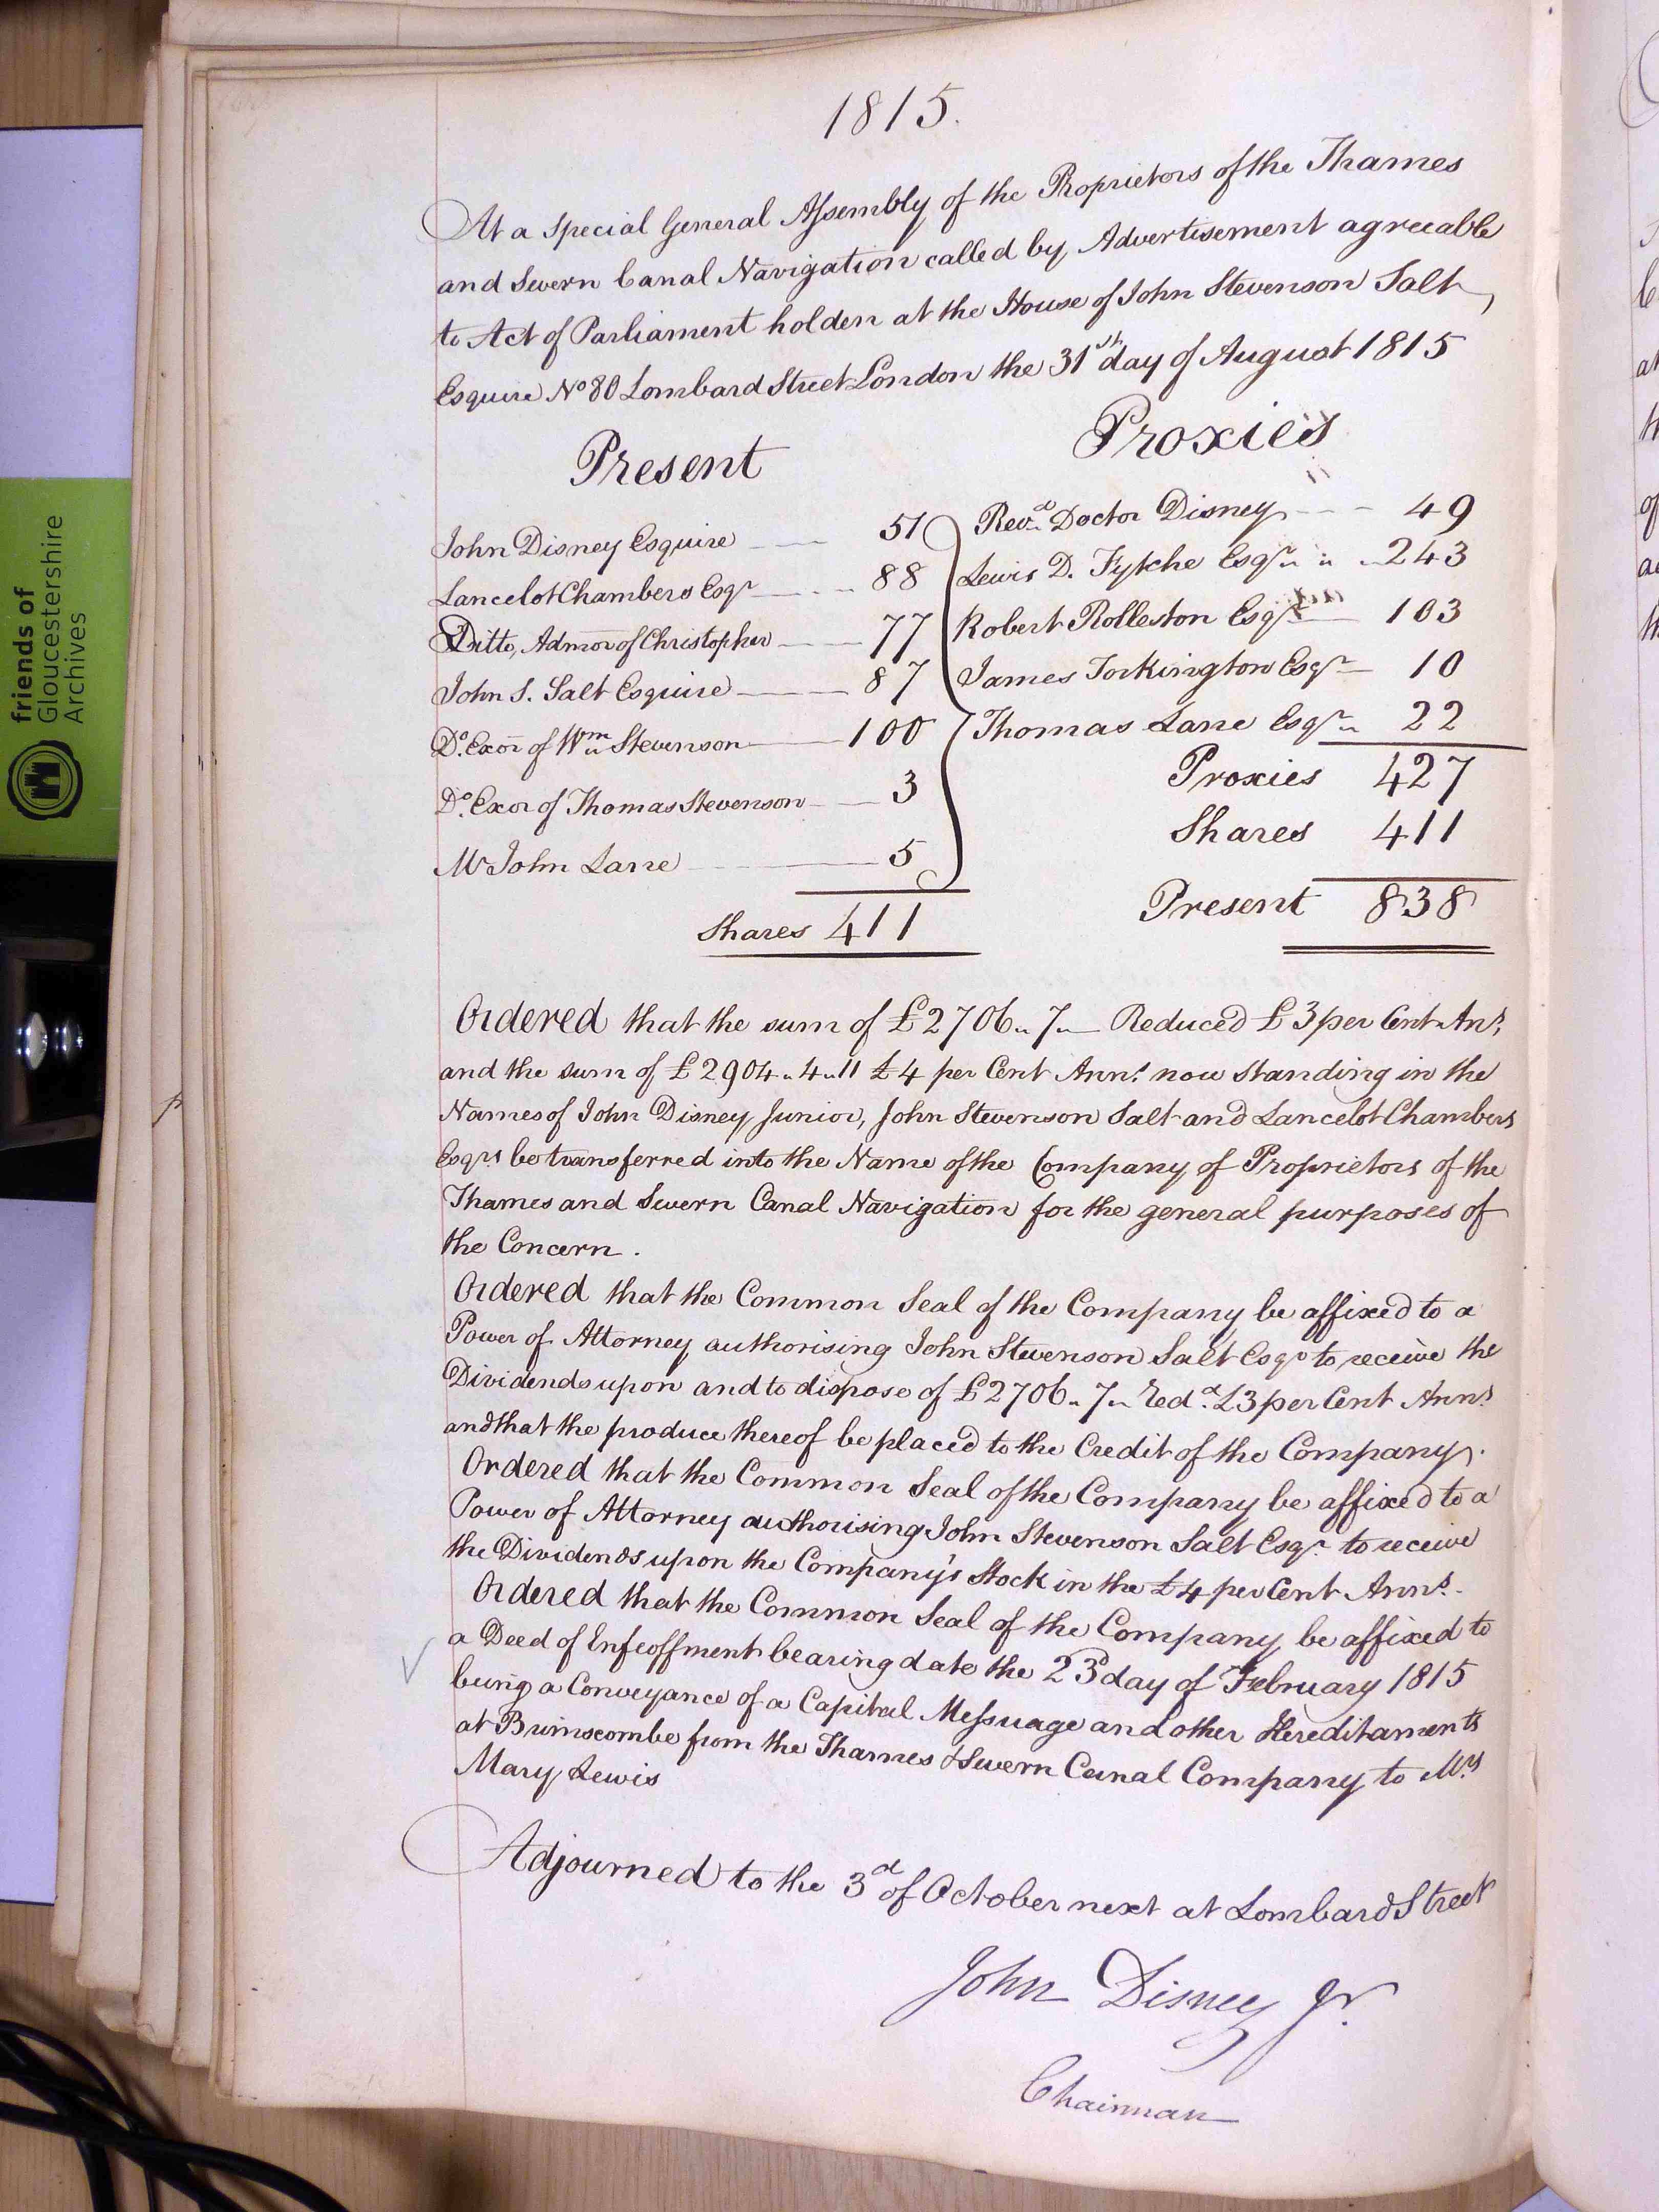 1815.
At a Special General Assembly of the Proprietors of the Thames
and Severn Canal Navigation called by Advertisement agreeable
to Act of Parliament holden at the House of John Stevenson Salt,
Esquire No 80 Lombard Street London the 31st day of August 1815
Present
John Disney Esquire 51
Lancelot Chambers Esqr 88
Ditto, Admor of Christopher 77
John S. Salt Esquire 87
Do. Exor of Wm Stevenson 100
Do. Exor of Thomas Stevenson 3
Mr John Lane 5
Shares 411
Proxies
Revd. Doctor Disney 49
Lewis D. Fytche Esqr 243
Robert Rolleston Esqr 103
James Torkington Esqr 10
Thomas Lane Esqr 22
Proxies 427
Shares 411
Present 838
Ordered that the sum of £2706 " 7 " — Reduced £3 per Cent Ans.
and the sum of £2904 " 4 " 11 £4 per Cent Anns. now standing in the
Names of John Disney Junior, John Stevenson Salt and Lancelot Chambers
Esqrs be transferred into the Name of the Company of Proprietors of the
Thames and Severn Canal Navigation for the general purposes of
the Concern.
Ordered that the Common Seal of the Company be affixed to a
Power of Attorney authorising John Stevenson Salt Esqr to receive the
Dividends upon and to dispose of £2706 " 7 " Red. £3 per Cent Anns.
and that the produce thereof be placed to the Credit of the Company.
Ordered that the Common Seal of the Company be affixed to a
Power of Attorney authorising John Stevenson Salt Esqr. to receive
the Dividends upon the Company's Stock in the £4 per Cent Anns.
Ordered that the Common Seal of the Company be affixed to
a Deed of Enfeoffment bearing date the 23d day of February 1815
being a Conveyance of a Capital Messuage and other Hereditaments
at Brimscombe from the Thames & Severn Canal Company to Mrs
Mary Lewis
Adjourned to the 3d of October next at Lombard Street
John Disney Jr.
Chairman
friends of
Gloucestershire
Archives